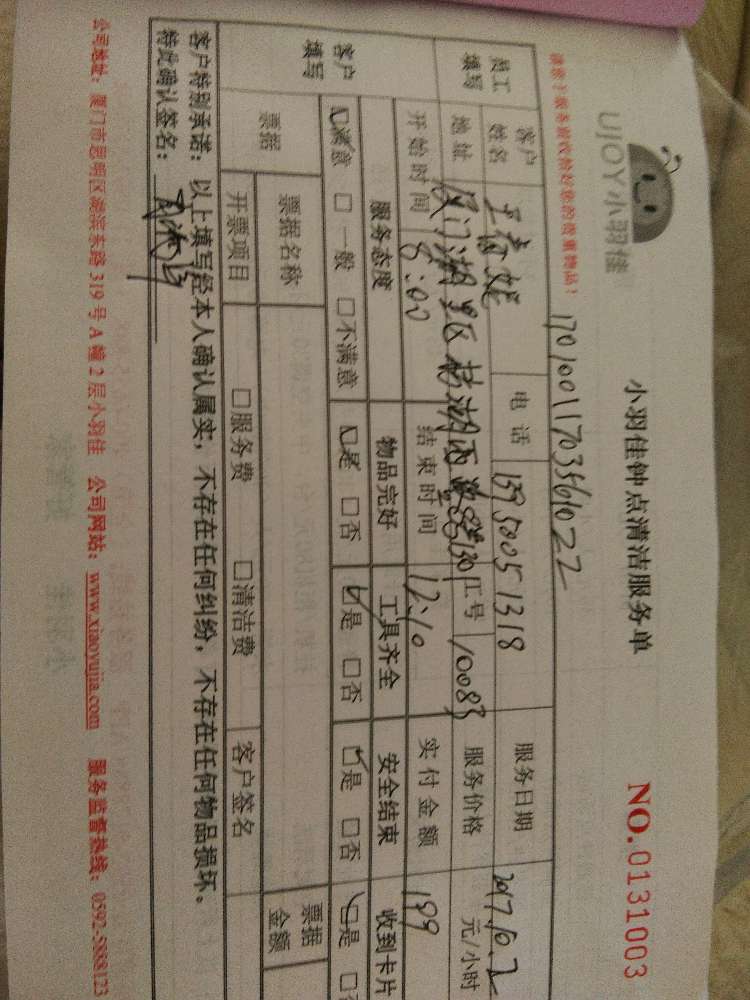 UJOY小羽佳
小羽佳钟点清洁服务单
NO.0131003
请您于服务前收拾好您的贵重物品!
17010011703561022
员工填写
客户姓名
电话 13950051318
服务日期 2017.10.2
地址
工号 10083
服务价格 元/小时
开始时间 8:00
结束时间 12:10
实付金额 199
客户填写
服务态度 物品完好 工具齐全 安全结束 收到卡片
☑满意 □一般 □不满意 ☑是 □否 ☑是 □否 ☑是 □否 ☑是
票据
票据名称
票据金额
开票项目 □服务费 □清洁费 客户签名
客户特别承诺:以上填写经本人确认属实,不存在任何纠纷,不存在任何物品损坏。
特此确认签名:
公司地址:厦门市思明区湖滨东路319号A幢2层小羽佳 公司网站:www.xiaoyujia.com 服务监督热线:0592-5888123